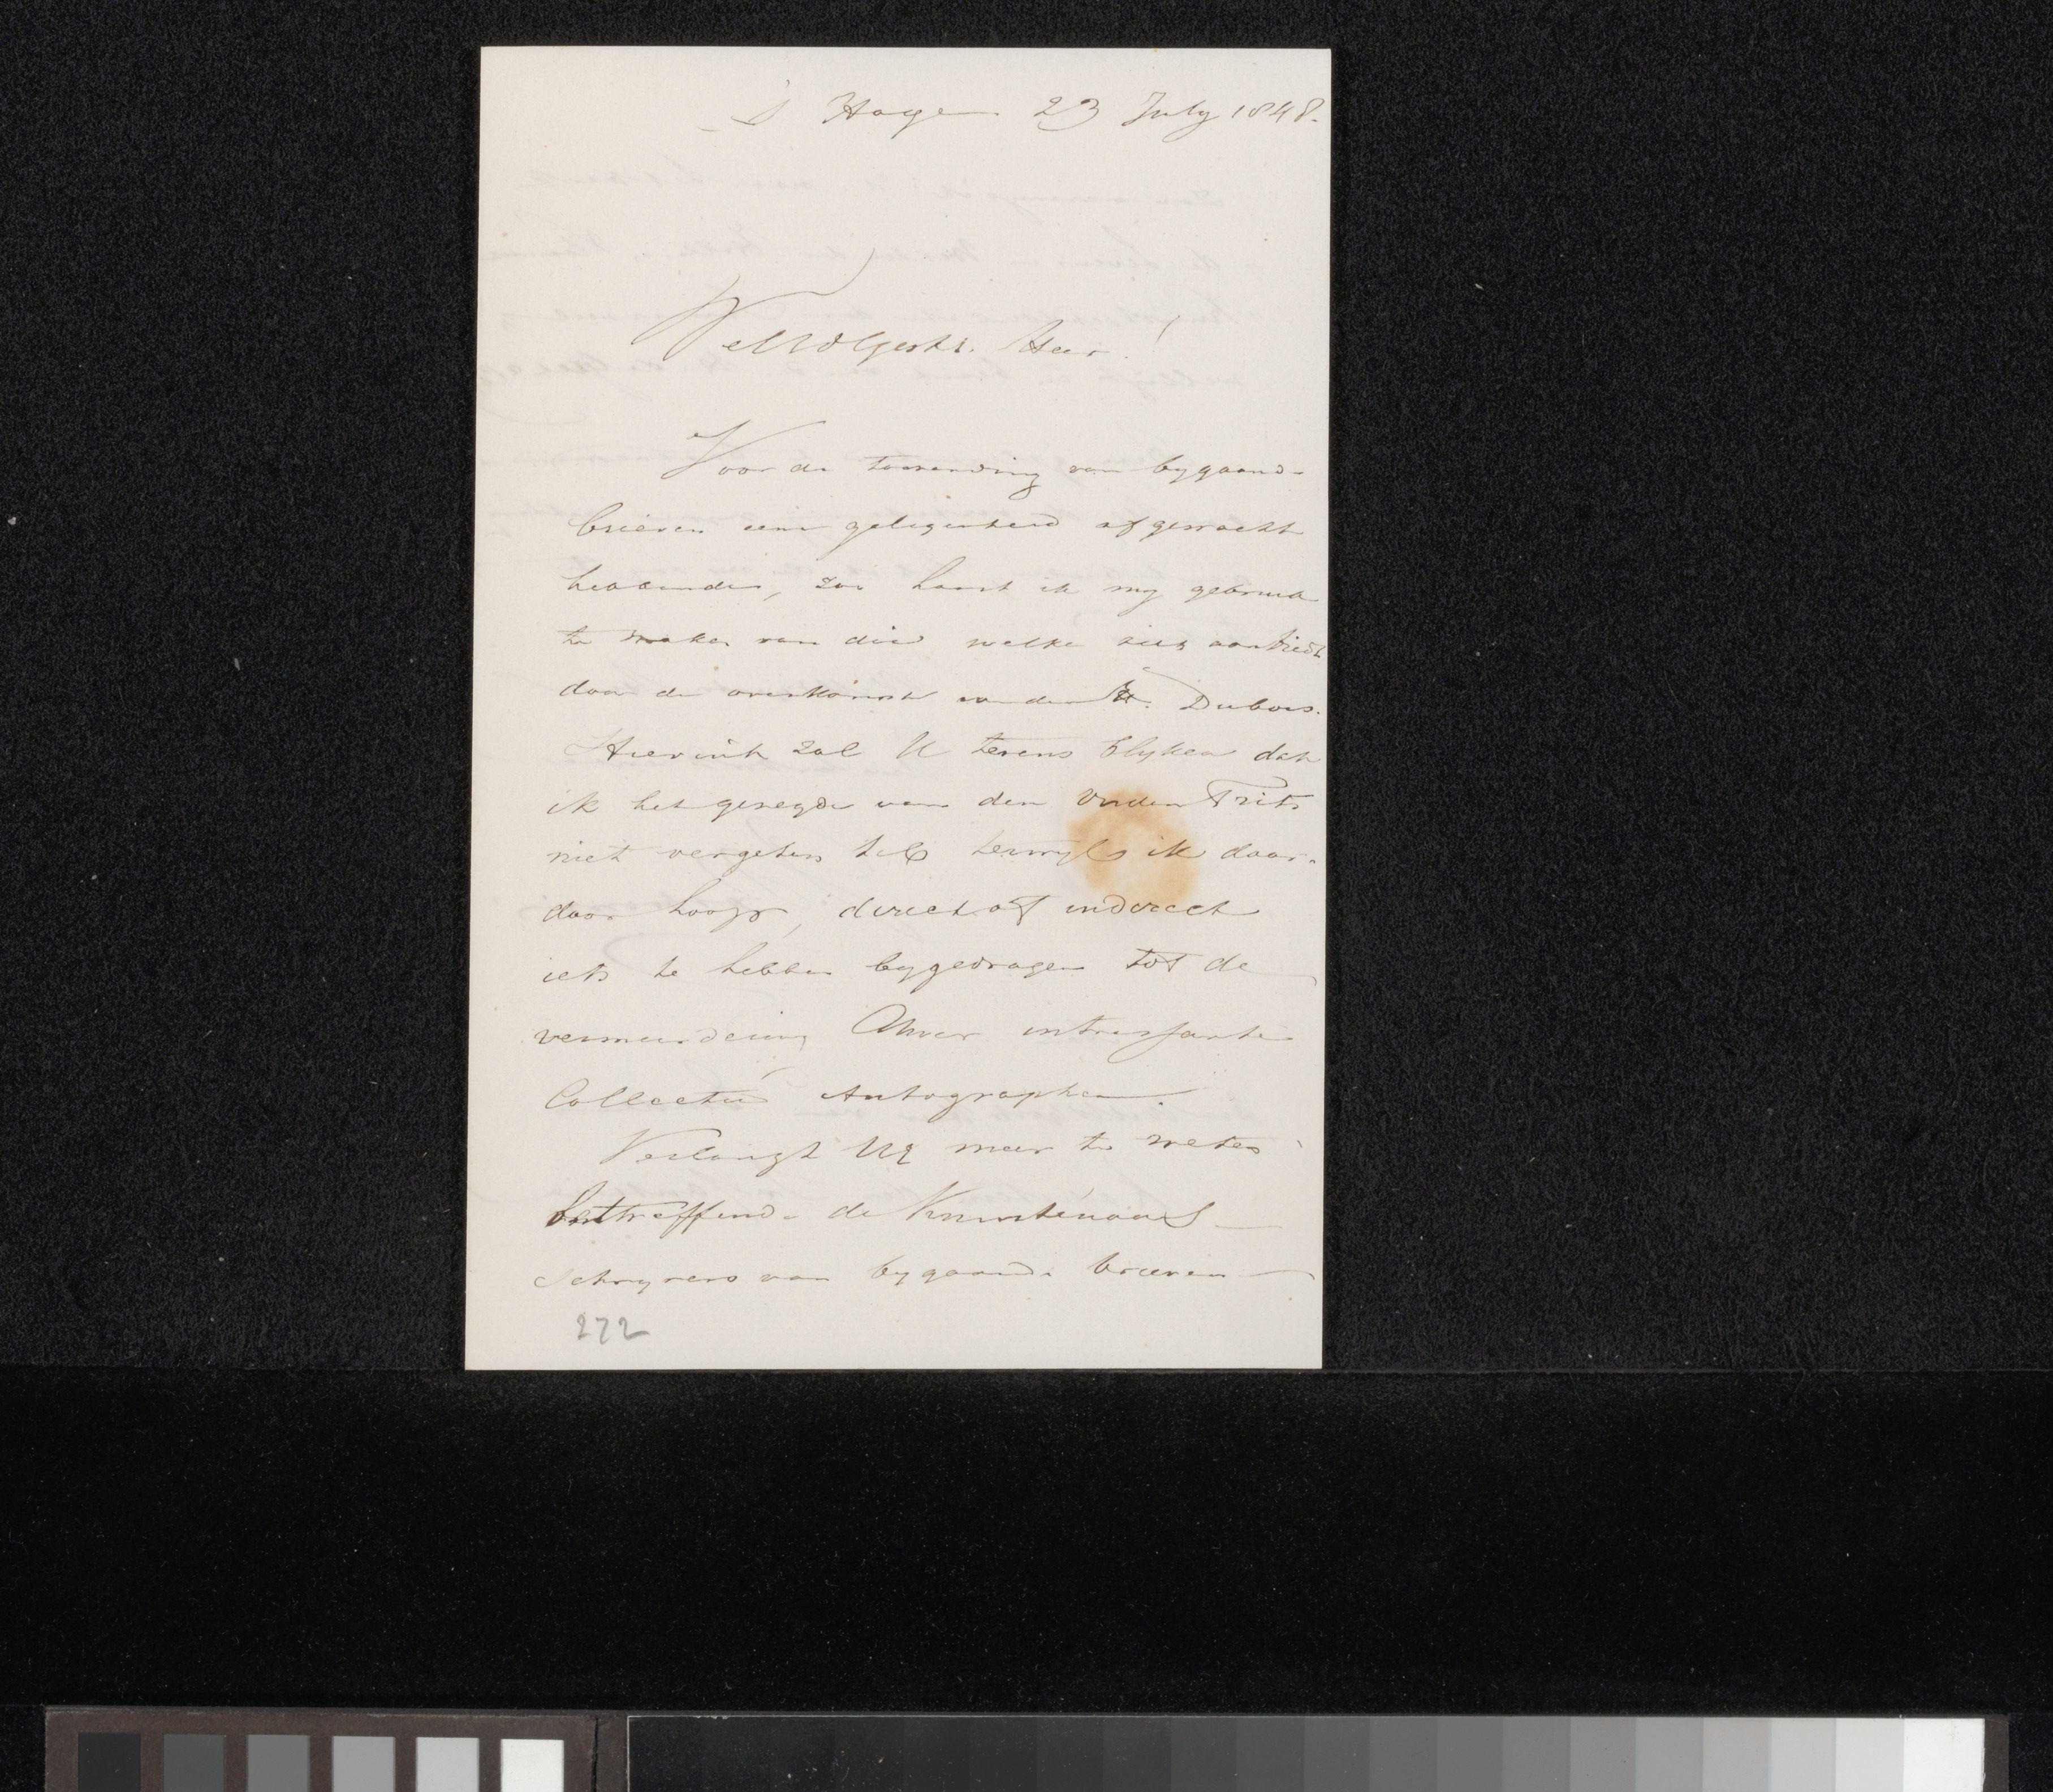 's Hage 23 July 1848.
WelEdlGestr. Heer!
Voor de toezending van bygaande
brieven eene gelegenheid afgewacht
hebbende, zoo haast ik my gebruik
te maken van die welke zich aanbiedt
door de overkomst van den H. Dubois.
Hieruit zal U tevens blyken dat
ik het gezegde van den Ouden Frits
niet vergeten heb terwyl ik daar-
door hoop, direct of indirect
iets te hebben bygedragen tot de
vermeerdering Uwer intressante
Collectie Autographen.
Verlangt UE meer te weten
betreffende de Kunstenaars
schryvers van bygaande brieven
272